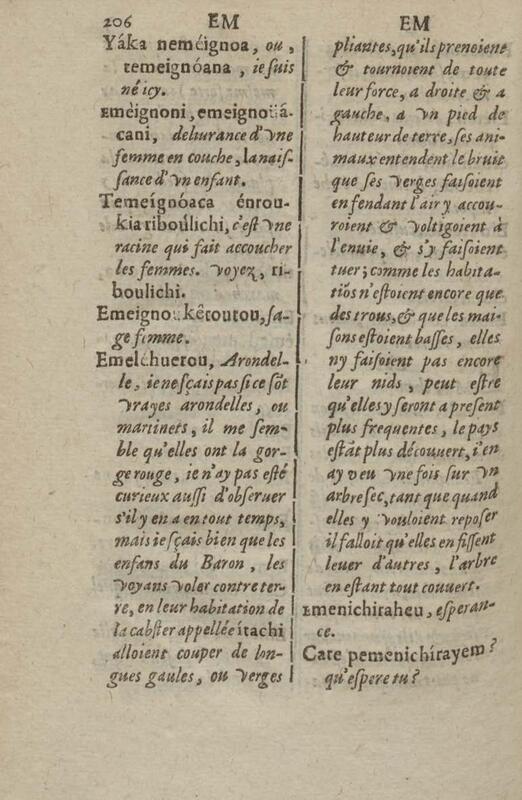 206 EM
Yáka neméignoa, ou,
temeignóana, ie suis
né icy.
Eméignoni, emeignoüá-
cani, deliurance d'vne
femme en couche, la naiſ-
ſance d'vn enfant.
Temeígnóaca énrou-
kia riboúlichi, c'est vne
racine qui fait accoucher
les femmes. voyez, ri-
boulichi.
Emeignoukêtoutou, ſa-
ge femme.
Emelchuerou, Arondel-
le, ie ne sçais pas si ce sõt
vrayes arondelles, ou
martinets, il me ſem-
ble qu'elles ont la gor-
ge rouge, ie n'ay pas esté
curieux auſſi d'obſeruer
s'il y en a en tout temps,
mais ie ſçais bien que les
enfans du Baron, les
voyans voler contre ter-
re, en leur habitation de
la cabſter appellée itachi
alloient couper de lon-
gues gaules, ou verges
EM
pliantes, qu'ils prenoient
& tournoient de toute
leur force, a droite & a
gauche, a vn pied de
hauteur de terre, ſes ani-
maux entendent le bruit
que ſes verges faiſoient
en fendant l'air y accou-
roient & voltigoient à
l'enuie, & s'y faiſoient
tuer; comme les habita-
tiõs n'eſtoient encore que
des trous, & que les mai-
ſons eſtoient baſſes, elles
ny faiſoient pas encore
leur nids, peut eſtre
qu'elles y ſeront a preſent
plus frequentes, le pays
eſtãt plus découuert, i'en
ay veu vne fois ſur vn
arbre ſec, tant que quand
elles y vouloient repoſer
il falloit qu'elles en fiſſent
leuer d'autres, l'arbre
en eſtant tout couuert.
Emenichiraheu, eſperan-
ce.
Cate pemenichírayem?
qu'eſpere tu?